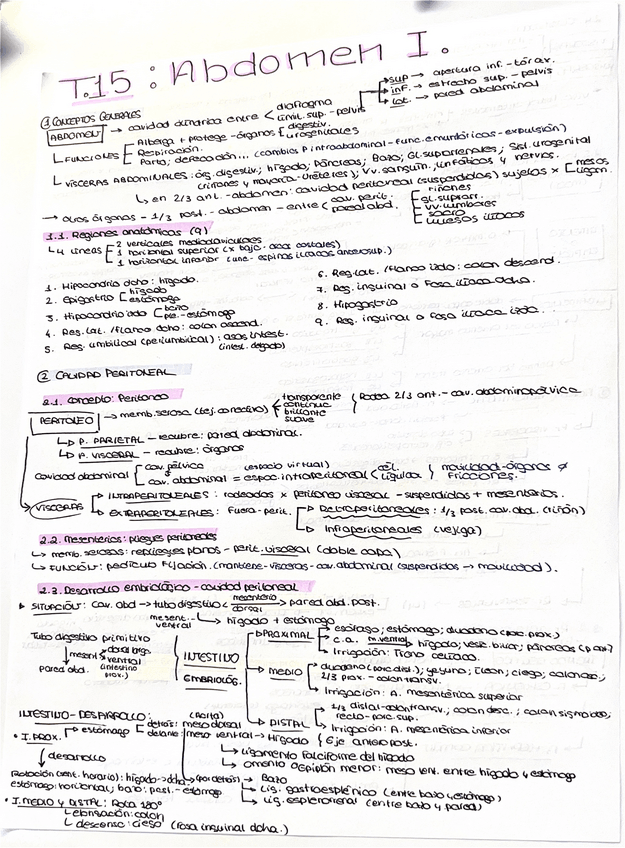 T.15: Abdomen I.
① CONCEPTOS GENERALES
ABDOMEN → cavidad cilíndrica entre < diafragma
límit. sup. - pelvis
sup → apertura inf. - tórax.
inf. → estrecho sup. - pelvis
lat. → pared abdominal
FUNCIONES
Alberga + protege - órganos { digestiv.
urogenitales
Respiración.
Parto, defecación... (cambios P intraabdominal - func. emuntóricas - expulsión)
VÍSCERAS ABDOMINALES: órg. digestiv.; hígado; Páncreas; Bazo; Gl. suprarrenales; Sist. urogenital
(riñones y mayoría - uréteres); Vv. sanguín., linfáticos y nervos.
↳ en 2/3 ant. - abdomen: cavidad peritoneal (suspendidos) sujetos x [ mesos
ligam.
→ otros órganos - 1/3 post. - abdomen - entre < cav. perit.
pared abd.
riñones
GL. suprarr.
vv. lumbares
sacro
huesos ilíacos
1.1. Regiones anatómicas (9)
↳ 4 líneas
2 verticales medioclaviculares
1 horizontal superior (x bajo - arcos costales)
1 horizontal inferior (une - espinas ilíacas anterosup.)
1. Hipocondrio dcho: hígado.
2. Epigastrio [ hígado
estómago
3. Hipocondrio izdo [ bazo
pte. - estómago
4. Reg. lat. / flanco dcho: colon ascend.
5. Reg. umbilical (periumbilical): asas intest.
(intest. delgado)
6. Reg. lat. / flanco izdo: colon descend.
7. Reg. inguinal o Fosa ilíaca dcha.
8. Hipogastrio
9. Reg. inguinal o fosa ilíaca izda.
② CAVIDAD PERITONEAL
2.1. Concepto: Peritoneo
PERITONEO → memb. serosa (tej. conectivo)
transparente
continua
brillante
suave
Rodea 2/3 ant. - cav. abdominopélvica
↳ P. PARIETAL - recubre: pared abdominal.
↳ P. VISCERAL - recubre: órganos
cavidad abdominal
cav. pélvica (espacio virtual)
cav. abdominal = espac. intraperitoneal < cél.
líquido } movilidad - órganos ∅
fricciones.
VÍSCERAS
INTRAPERITONEALES: rodeados x peritoneo visceral - suspendidos + mesenterios.
EXTRAPERITONEALES: Fuera - perit.
Retroperitoneales: 1/3 post. cav. abd. (riñón)
Infraperitoneales (vejiga)
2.2. Mesenterios: pliegues peritoneales
↳ memb. serosas: repliegues planos - perit. visceral (doble capa)
↳ FUNCIÓN: pedículo fijación. (mantiene - vísceras - cav. abdominal (suspendidos → movilidad).
2.3. Desarrollo embriológico - cavidad peritoneal
▸ SITUACIÓN: Cav. abd → tubo digestivo < mesenterio
dorsal → pared abd. post.
mesent. ventral → hígado + estómago
Tubo digestivo primitivo
mesent.
dorsal largo
ventral
(intestino
prox.)
pared abd.
INTESTINO
EMBRIOLÓG.
PROXIMAL
esófago; estómago; duodeno (porc. prox.)
c.a. m. ventral hígado; vesíc. biliar; páncreas (pt. ant)
Irrigación: Tronco celíaco.
MEDIO
duodeno (porc. dist.); yeyuno; íleon; ciego; colon asc;
2/3 prox. - colon transv.
Irrigación: A. mesentérica superior
DISTAL
1/3 distal - colon transv.; colon desc.; colon sigmoides;
recto - porc. sup.
Irrigación: A. mesentérica inferior
INTESTINO - DESARROLLO:
• I. PROX. → estómago
detrás: meso dorsal
delante: meso ventral → Hígado } Eje anteropost.
desarrollo
↳ ligamento falciforme del hígado
↳ omento o epiplón menor: meso ven. entre hígado y estómago
Rotación (sent. horario): hígado → dcha (por detrás) → Bazo
estómago: horizontal; bazo: post. - estómago
↳ Lig. gastroesplénico (entre bazo y estómago)
↳ Lig. esplenorrenal (entre bazo y pared)
• I. MEDIO Y DISTAL: Rota 180°
descenso: ciego (fosa inguinal dcha.)